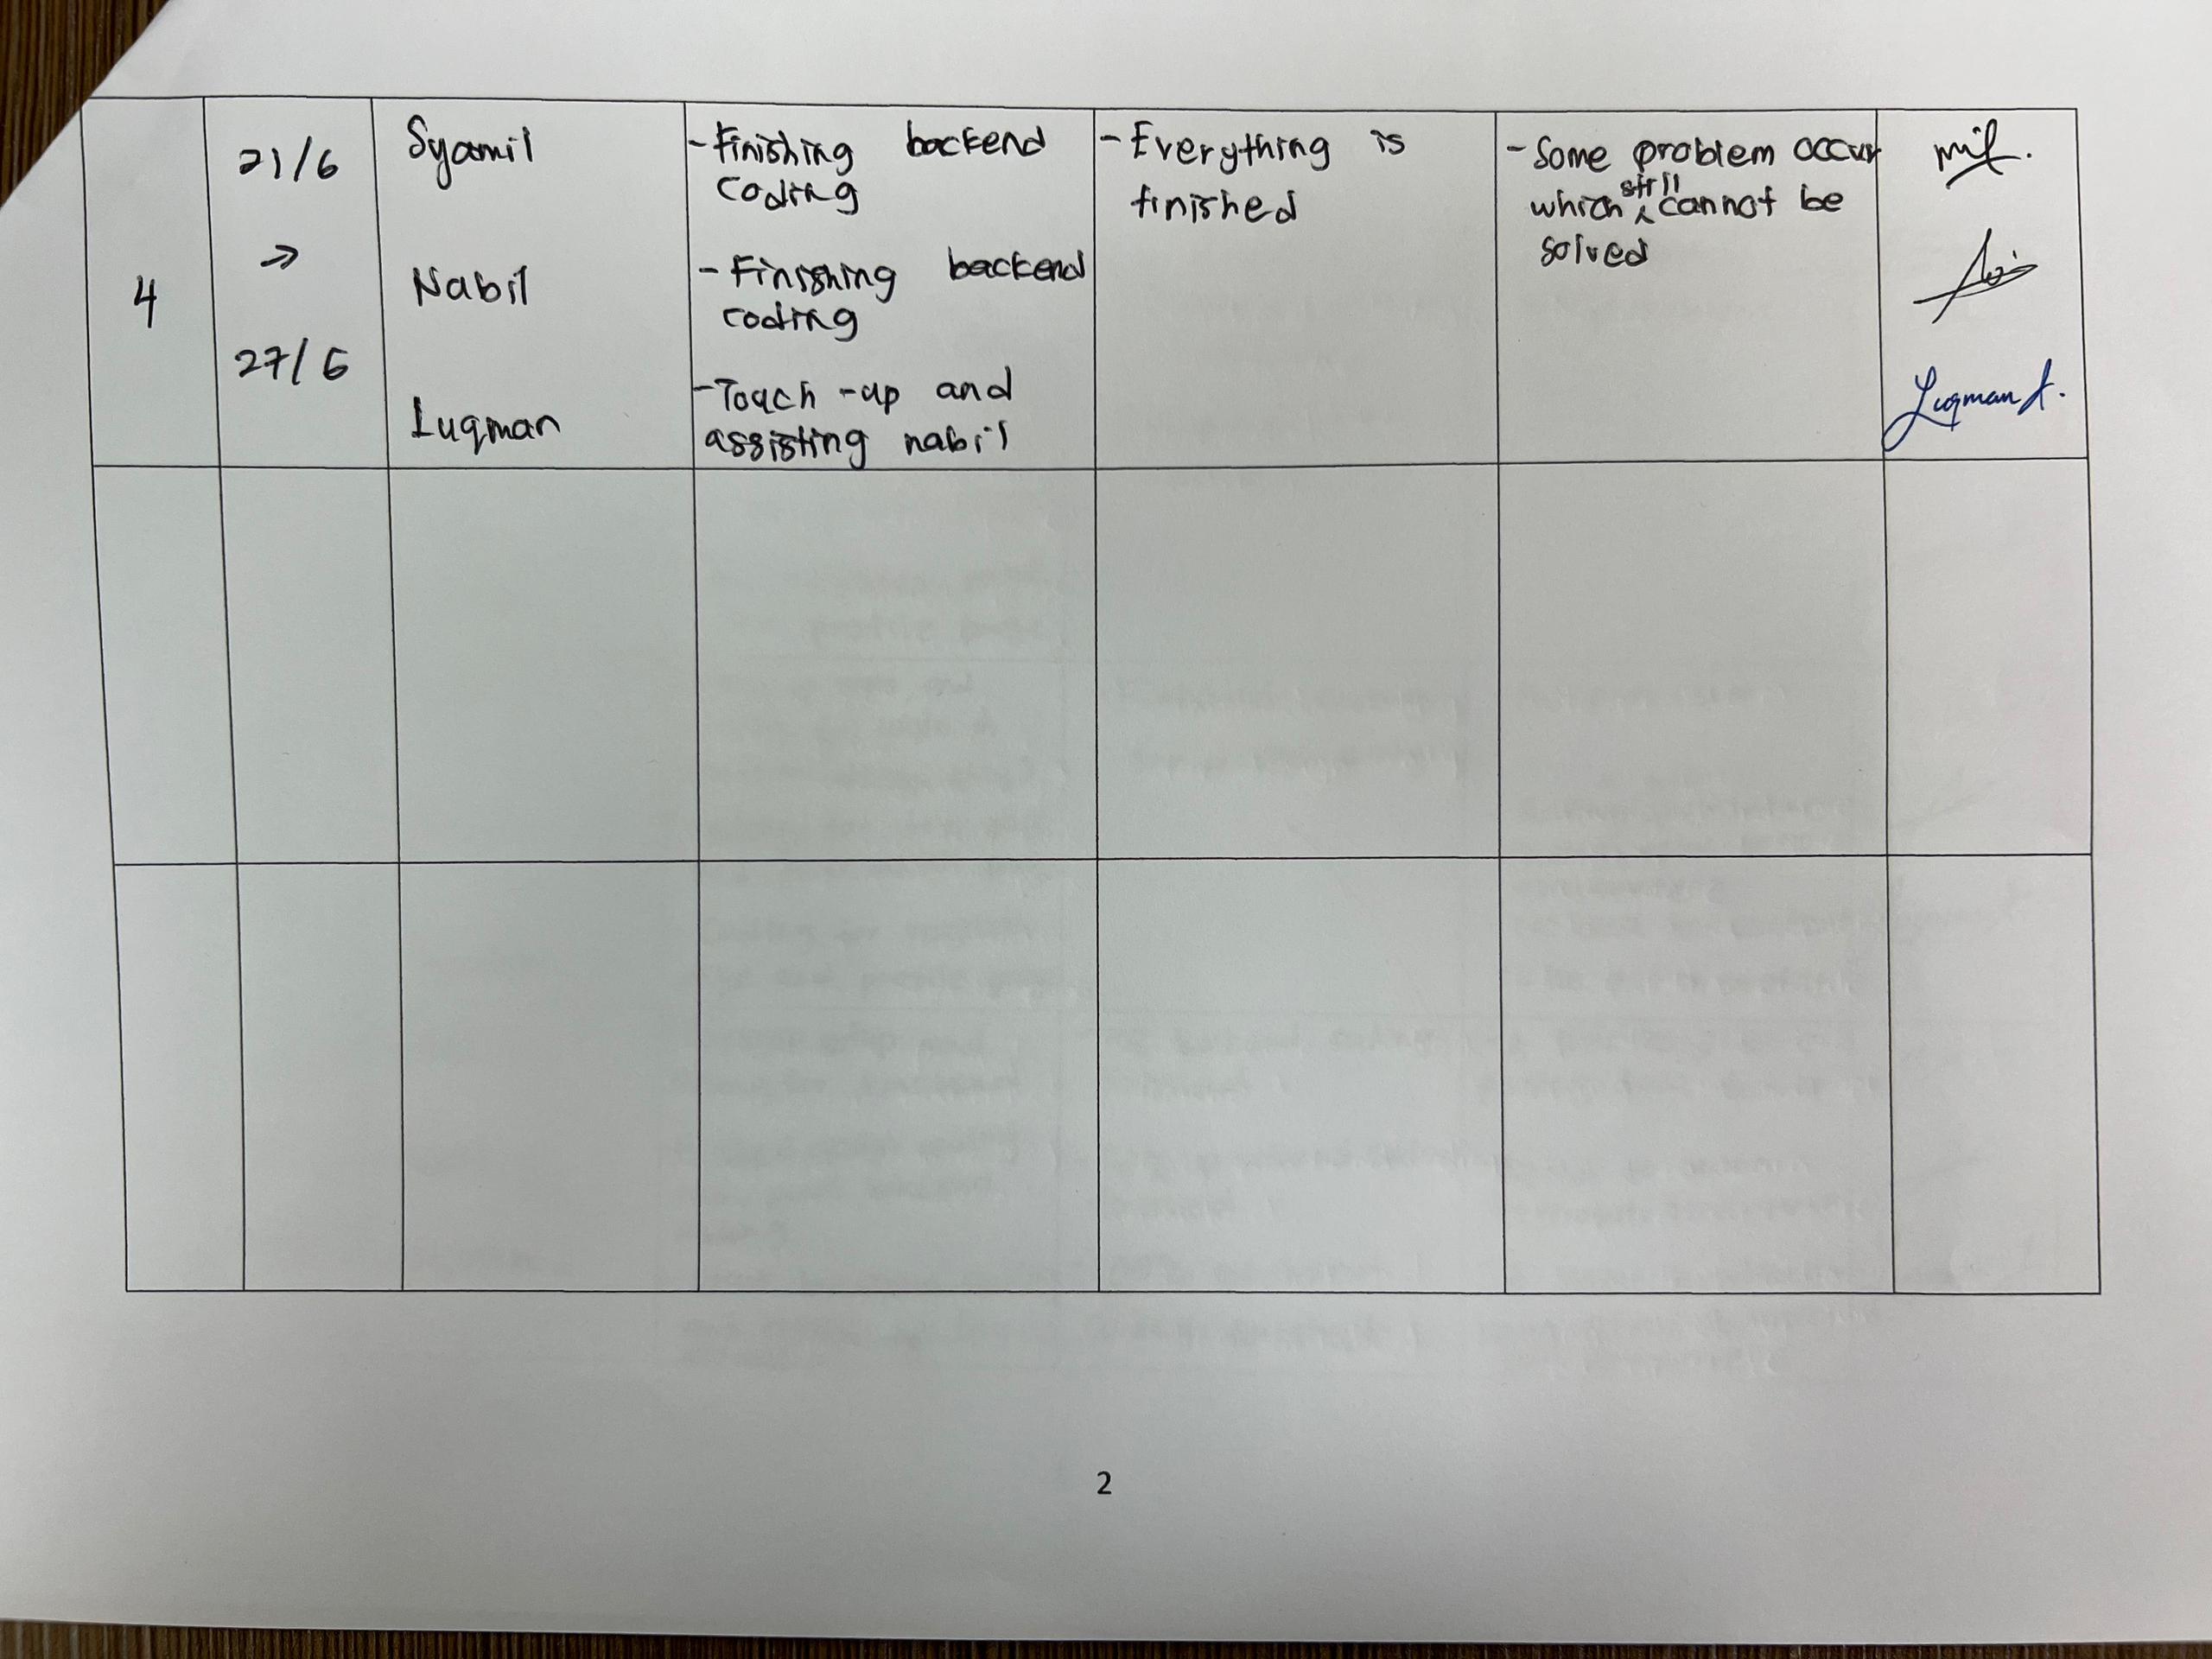 4
21/6
→
27/6
Syamil
Nabil
Luqman
- Finishing backend
coding
- Finishing backend
coding
- Touch -up and
assisting nabil
- Everything is
finished
- Some problem occur
which still cannot be
solved
Luqman
2